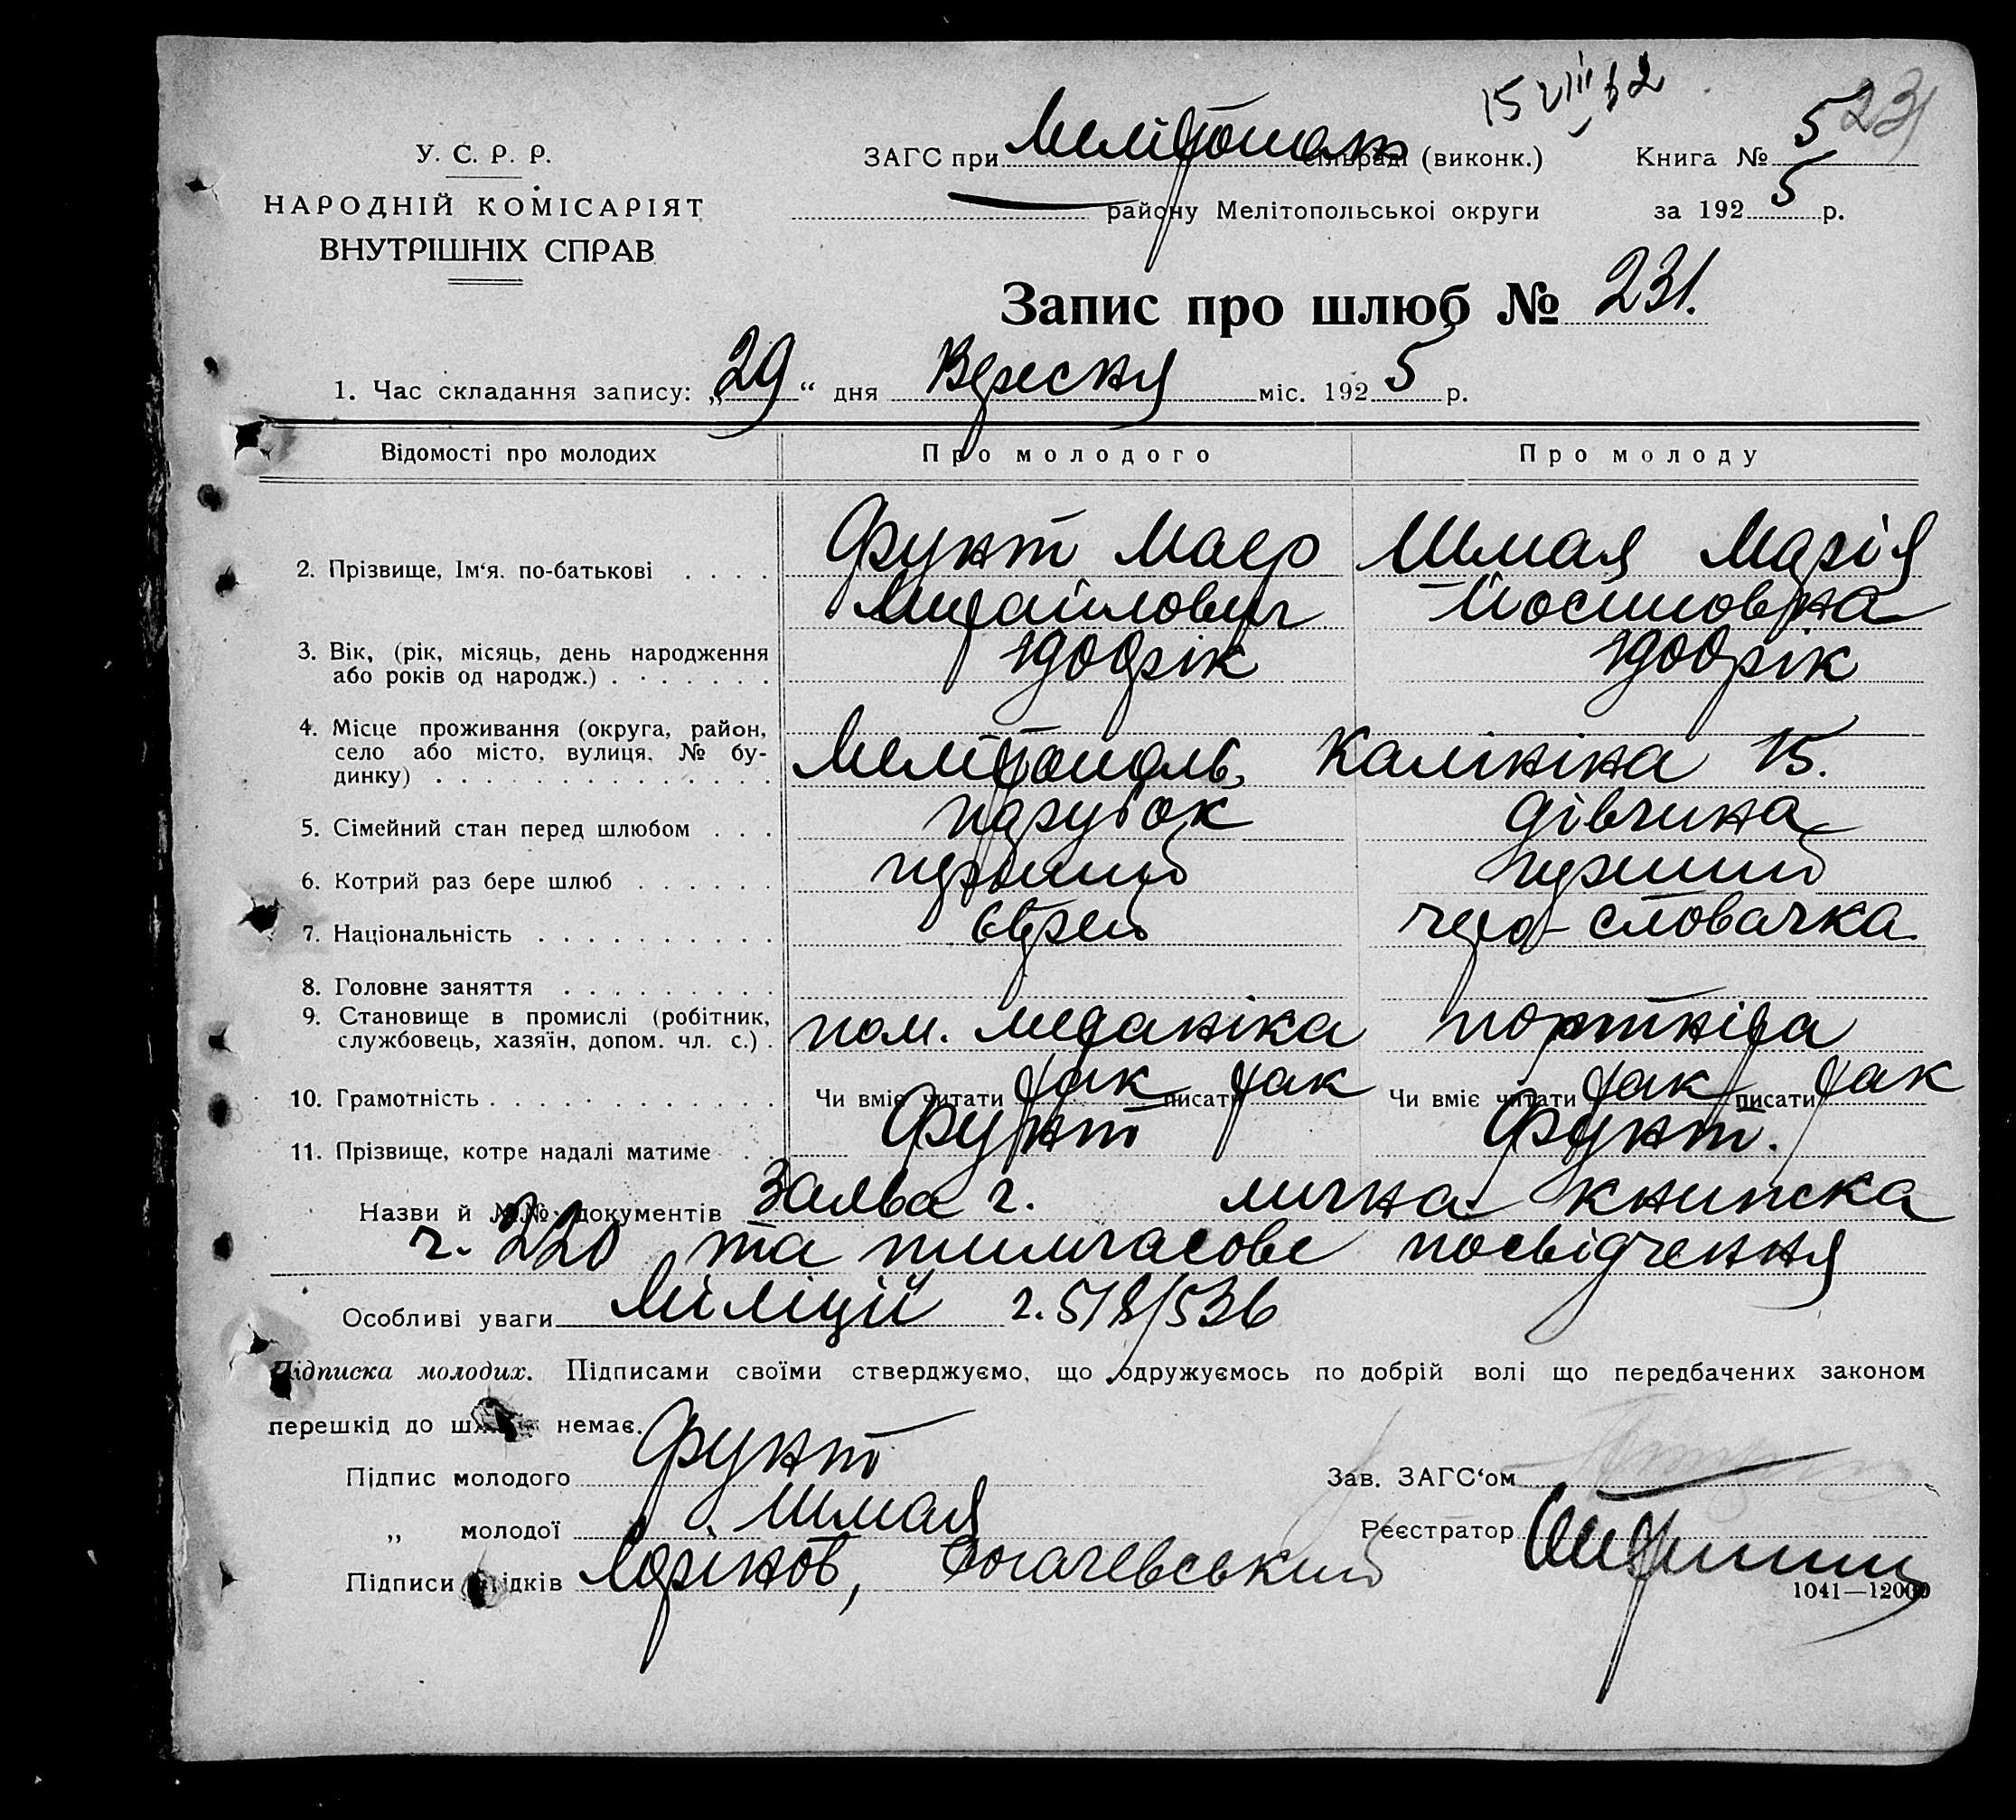 15 VIII 62
231
У. С. Р. Р.
НАРОДНІЙ КОМІСАРІЯТ
ВНУТРІШНІХ СПРАВ
ЗАГС при Мелітопол сільраді (виконк.) Книга № 5
району Мелітопольської округи за 192 5 р.
Запис про шлюб № 231.
1. Час складання запису: „ 29 “ дня Вересня міс. 192 5 р.
Відомості про молодих Про молодого Про молоду
2. Прізвище, Ім‘я. по-батькові . . . . Фунт Маєр Шмая Марія
Михайлович Йосиповна
3. Вік, (рік, місяць, день народження 1900 рік 1900 рік
або років од народж.) . . . . . . .
4. Місце проживання (округа, район,
село або місто, вулиця, № бу- Мелітополь, Калініна 15.
динку) . . . . . . . . . . . . . .
5. Сімейний стан перед шлюбом . . . парубок дівчина
6. Котрий раз бере шлюб . . . . . . перший перший
7. Національність . . . . . . . . . . Єврей чехо-словачка
8. Головне заняття . . . . . . . . .
9. Становище в промислі (робітник, пом. механіка портніха
службовець, хазяїн, допом. чл. с.) .
10. Грамотність . . . . . . . . . . . . Чи вміє читати так писати так Чи вміє читати так писати так
11. Прізвище, котре надалі матиме . . Фунт Фунт.
Назви й №№ документів Заява ч. лична книжка
ч. 220 та тимчасове посвідчення
Особливі уваги Міліції ч. 518/536
Підписка молодих. Підписами своїми стверджуємо, що одружуємось по добрій волі що передбачених законом
перешкід до немає.
Підпис молодого Фунт Зав. ЗАГС‘ом
„ молодої Шмая Реєстратор
Підписи свідків Богачевський
1041—12000